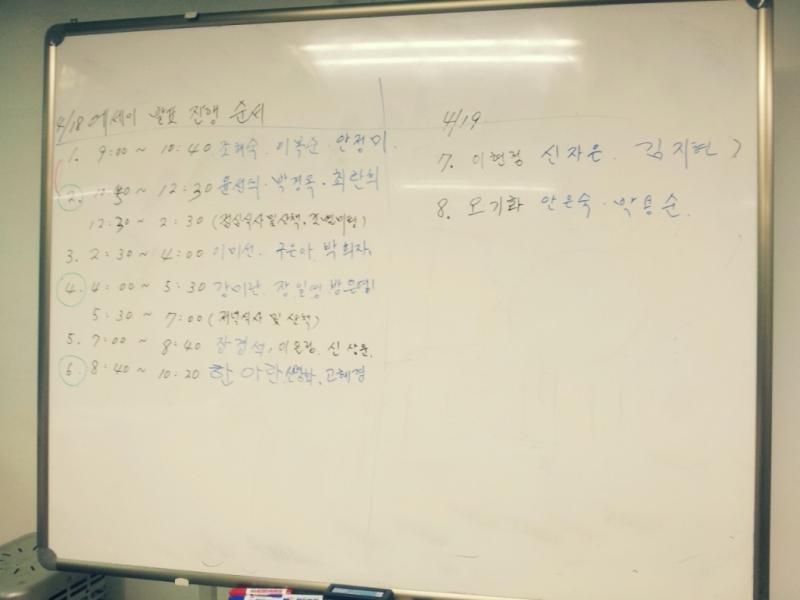 4/18 에세이 발표 진행 순서
1. 9:00 ~ 10:40 조혜숙. 이복순. 안정미.
2. 10:50 ~ 12:30 윤선희. 박경옥. 최란희
12:30 ~ 2:30 (점심식사 및 산책.
3. 2:30 ~ 4:00 이미선. 구은아. 박희자.
4. 4:00 ~ 5:30 강미란. 장일영
5:30 ~ 7:00 (저녁식사 및 산책)
5. 7:00 ~ 8:40 장경석, 이은정. 신상운.
6. 8:40 ~ 10:20 한아란. 고혜경
4/19
7. 이현정 신자은. 김지현
8. 오기화 안은숙. 박봉순.